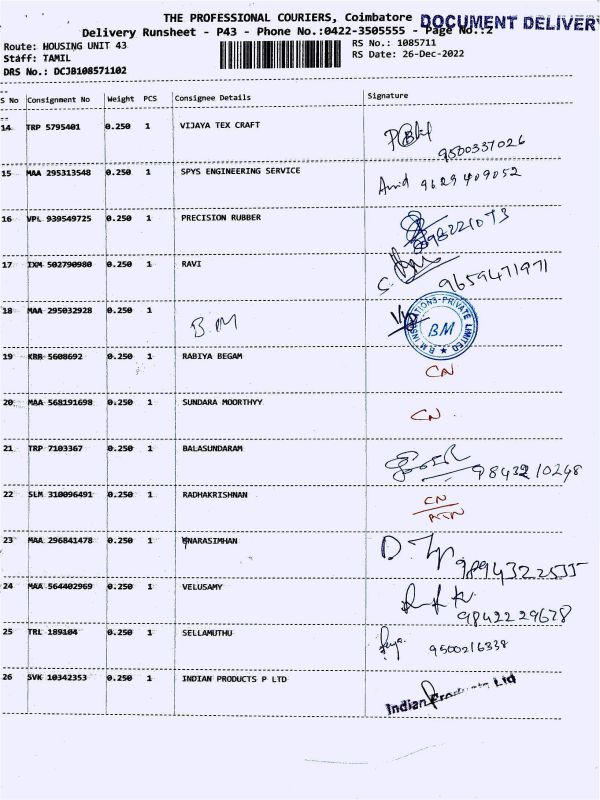 THE PROFESSIONAL COURIERS, Coimbatore
DOCUMENT DELIVER
Delivery Runsheet - P43 - Phone No.:0422-3505555 - Page No.:2
Route: HOUSING UNIT 43
RS No.: 1085711
Staff: TAMIL
RS Date: 26-Dec-2022
DRS No.: DCJB108571102
S No Consignment No Weight PCS Consignee Details Signature
14 TRP 5795401 0.250 1 VIJAYA TEX CRAFT
9500337026
15 MAA 295313548 0.250 1 SPYS ENGINEERING SERVICE 9629409052
16 VPL 939549725 0.250 1 PRECISION RUBBER
17 IXM 502790980 0.250 1 RAVI 9659471971
18 MAA 295032928 0.250 1 B.M BM
PRIVATE LIMITED
19 KRB 5608692 0.250 1 RABIYA BEGAM CN
20 MAA 568191698 0.250 1 SUNDARA MOORTHYY CN
21 TRP 7103367 0.250 1 BALASUNDARAM 9843210248
22 SLM 310096491 0.250 1 RADHAKRISHNAN CN
23 MAA 296841478 0.250 1 NARASIMHAN 9894322535
24 MAA 564402969 0.250 1 VELUSAMY
9842229678
25 TRL 189104 0.250 1 SELLAMUTHU 9500216338
26 SVK 10342353 0.250 1 INDIAN PRODUCTS P LTD Indian Products Ltd